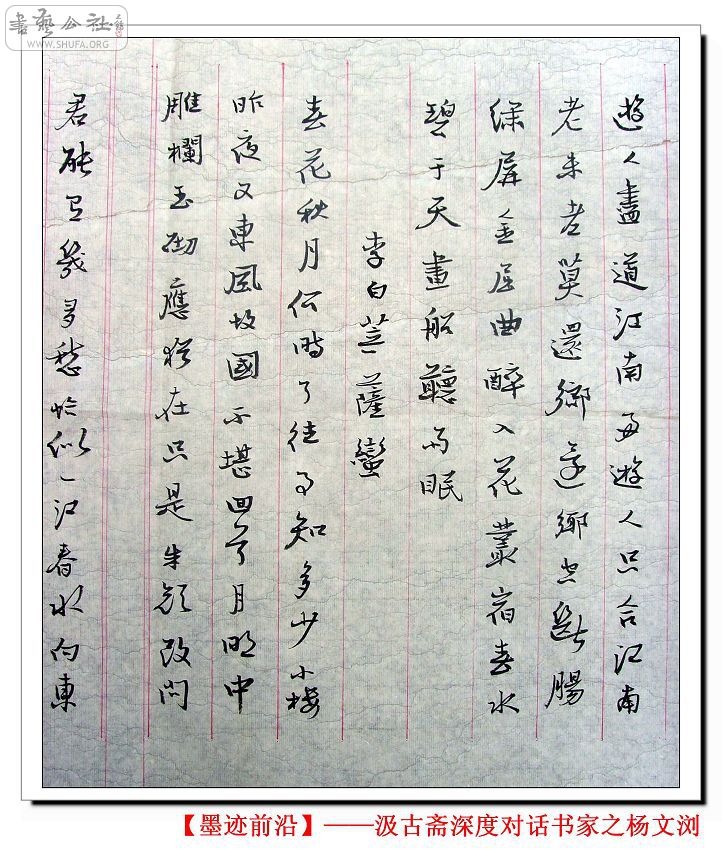 書藝公社
WWW.SHUFA.ORG
遊人盡道江南好遊人只合江南
老未老莫還鄉還鄉須斷腸
綠屏金屈曲醉入花叢宿春水
碧于天畫船聽雨眠
李白菩薩蠻
春花秋月何時了往事知多少小樓
昨夜又東風故國不堪回首月明中
雕欄玉砌應猶在只是朱顏改問
君能有幾多愁恰似一江春水向東
【墨迹前沿】——汲古斋深度对话书家之杨文浏